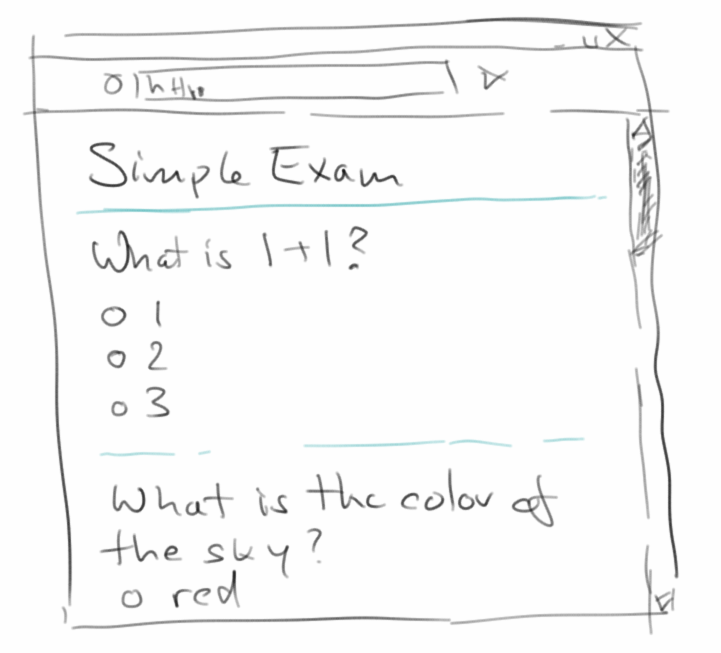 Simple Exam
What is 1+1?
1
2
3
What is the color of
the sky?
red